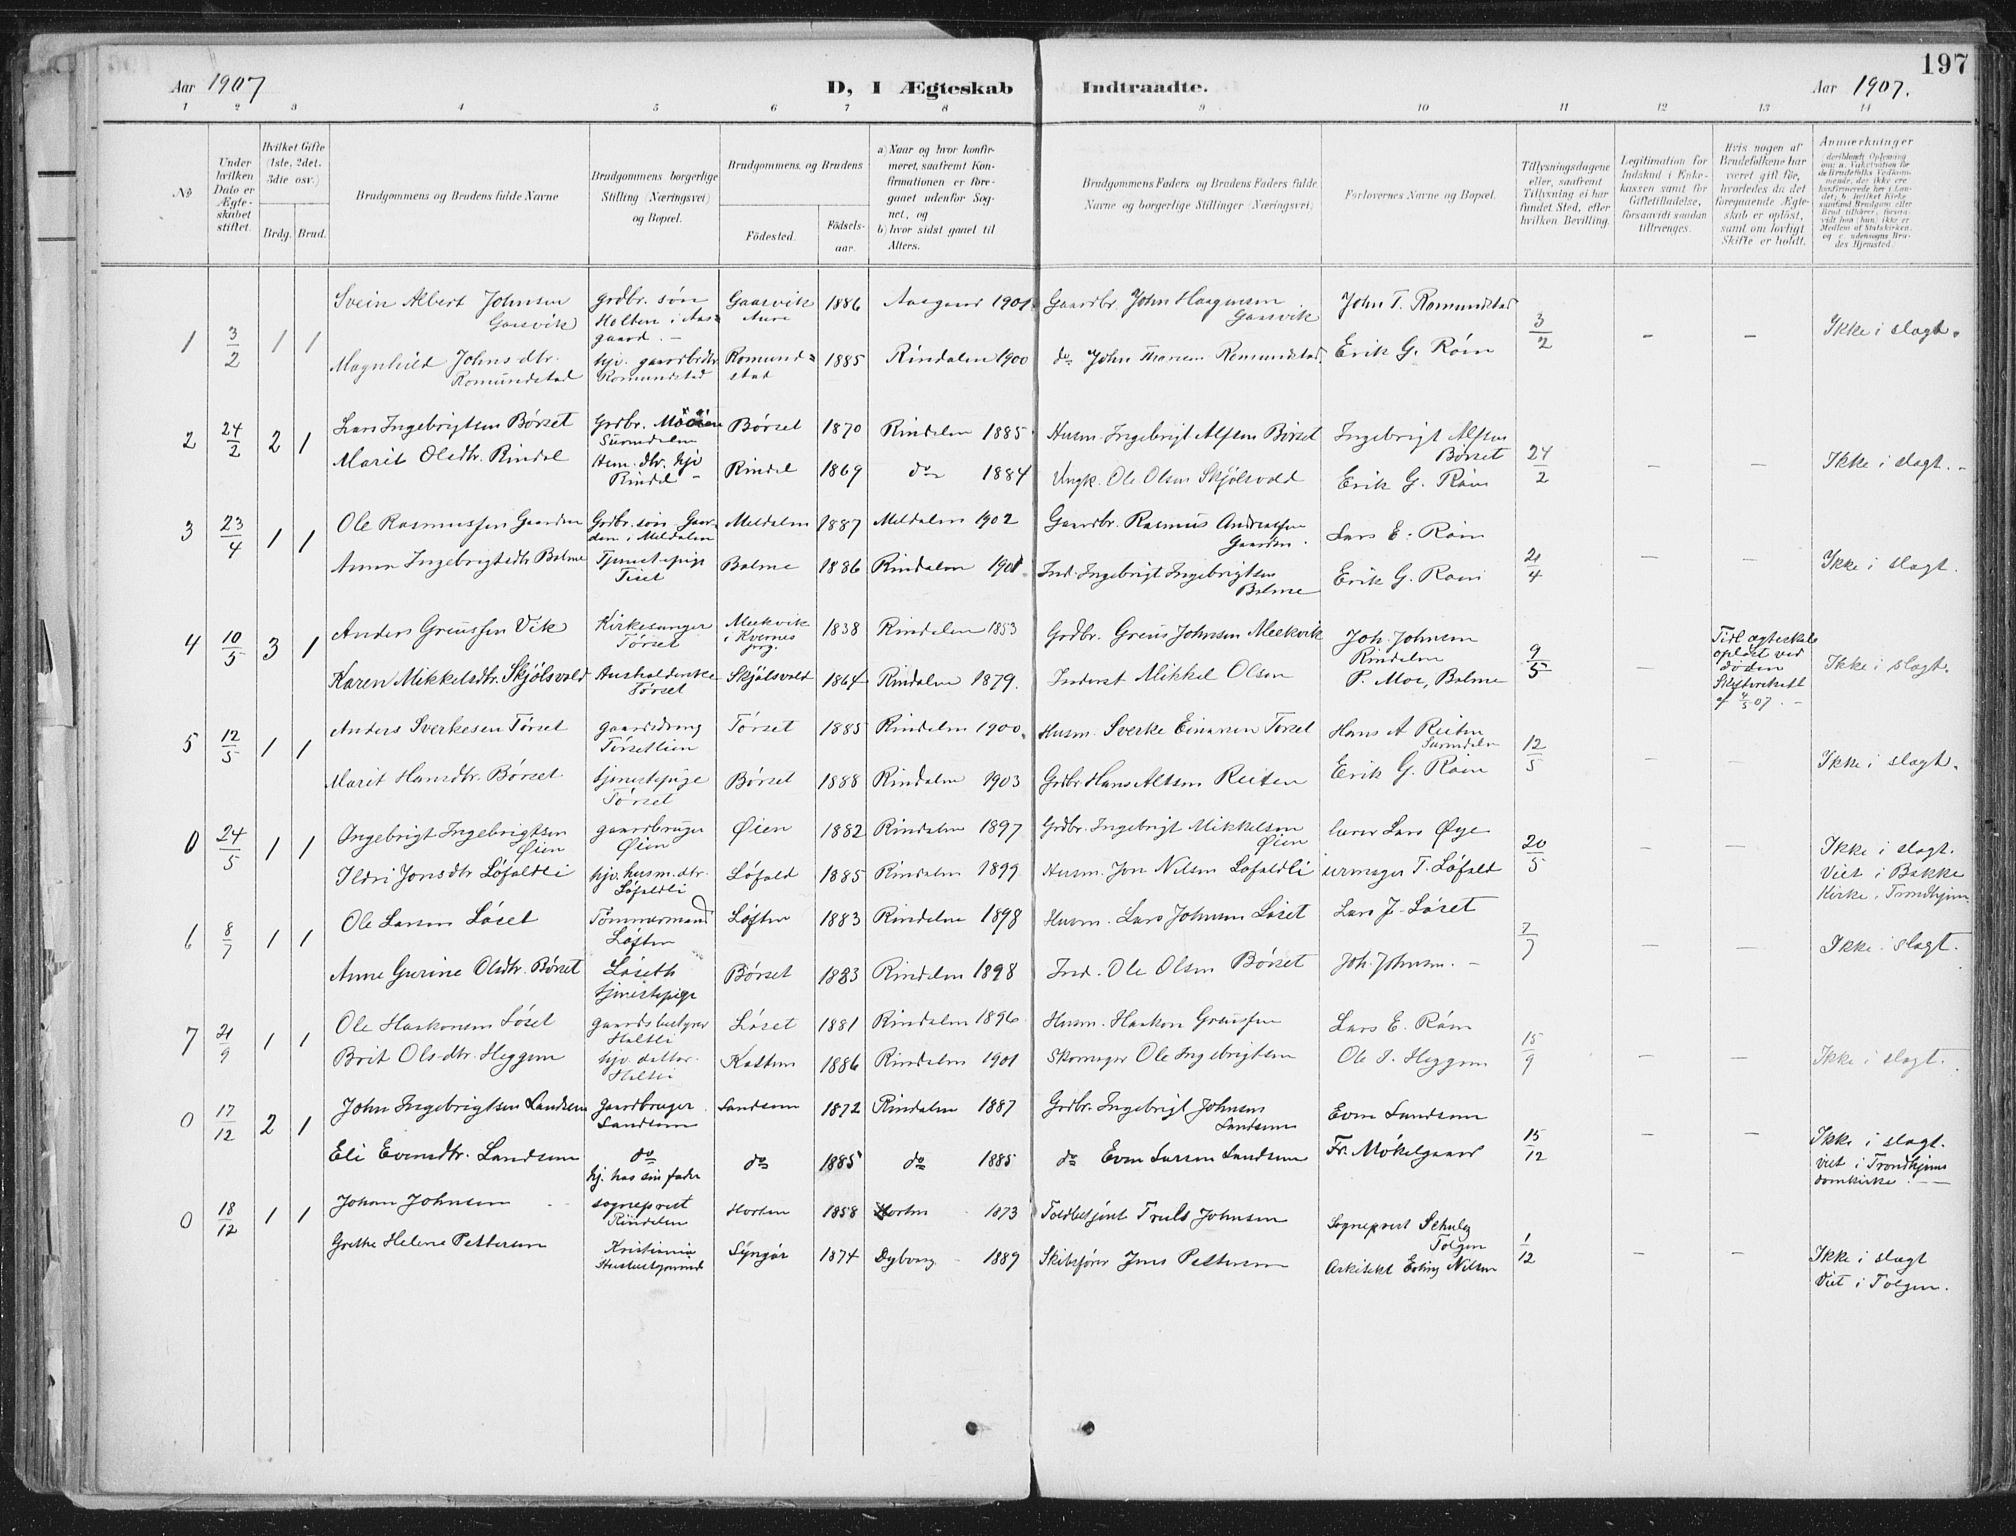 197
Aar 1907 D, I Ægteskab Indtraadte. Aar 1907.
1 2 3 4 5 6 7 8 9 10 11 12 13 14
No
Under hvilken Dato er Ægteskabet stiftet.
Hvilket Gifte (1ste, 2det, 3die osv.)
Brdg. Brud.
Brudgommens og Brudens fulde Navne
Brudgommens borgerlige Stilling (Næringsvei) og Bopæl.
Brudgommens og Brudens
Fødested.
Fødselsaar.
a) Naar og hvor konfirmeret, saafremt Konfirmationen er foregaaet udenfor Sognet, og
b) hvor sidst gaaet til Alters.
Brudgommens Faders og Brudens Faders fulde Navne og borgerlige Stillinger (Næringsvei)
Forlovernes Navne og Bopæl.
Tillysningsdagene eller, saafremt Tillysning ei har fundet Sted, efter hvilken Bevilling.
Legitimation for Indskud i Enkekassen samt for Giftetilladelse, forsaavidt saadan tiltrænges.
Hvis nogen af Brudefolkene har været gift før, hvorledes da det foregaaende Ægteskab er opløst, samt om lovligt Skifte er holdt.
Anmærkninger
1 3/2 1 1 Svein Albert Johnsen Gaasvik grdbr. søn Holten i Aasgaard. - Gaasvik Aure 1886 Aasgaard 1901 Gaardbr. John Haagensen Gaasvik John T. Romundstad 3/2 - - Ikke i slægt.
Magnhild Johnsdtr. Romundstad hjv. gaardbrdtr Romundstad Romundstad 1885 Rindalen 1900 do John Romundstad Erik G. Røm
2 24/2 2 1 Lars Ingebrigtsen Børset Grdbr. Surendalen Børset 1870 Rindalen 1885 Husm. Ingebrigt Alfsen Børset Ingebrigt Alfsen Børset 24/2 - - Ikke i slægt. -
Marit Olsdtr. Rindal Rindal 1869 do 1884 Ungk. Ole Olsen Skjølsvold Erik G. Røm
3 23/4 1 1 Ole Rasmussen Gaarden Grdbr. søn Gaarden i Meldalen Meldalen 1887 Meldalen 1902 Gaardbr. Rasmus Andreassen Gaarden. Lars E. Røm 21/4 - - Ikke i slægt.
Anna Ingebrigtsdtr Bolme Tjenestepige Tiset Bolme 1886 Rindalen 1901 Ind. Ingebrigt Ingebrigtsen Bolme Erik G. Røm
4 10/5 3 1 Anders Greussen Vik Kirkesanger Tørset Meekvik i Kvernes prg. 1838 Rindalen 1853 Grdbr. Greus Johnsen Meekvik Joh. Johnsen Rindalen 9/5 - Tidl ægteskab opløst ved døden Skifteretsatt af 4/5 07. - Ikke i slægt.
Karen Mikkelsdtr. Skjølsvold Husholderske Tørset Skjølsvold 1864 Rindalen 1879. Inderst Mikkel Olsen P. Moe, Bolme
5 12/5 1 1 Anders Sverkesen Tørset gaardsdreng Tørsetlien Tørset 1885 Rindalen 1900. Husm. Sverke Einarsen Tørset Hans A Reiten Surendalen 12/5 - - Ikke i slægt.
Marit Hansdtr. Børset tjenestepige Tørset Børset 1888 Rindalen 1903 Grdbr Hans Alfsen Reiten Erik G. Røm
0 24/5 1 1 Ingebrigt Ingebrigtsen Øien gaardbruger Øien Øien 1882 Rindalen 1897 Grdbr. Ingebrigt Mikkelsen Øien lærer Lars Øye 20/5 - - Ikke i slægt. Viet i Bakke Kirke, Trondhjem
Ildri Jonsdtr Løfaldli hjv. husm. dtr. Løfaldli Løfald 1885 Rindalen 1899 Husm. Jon Nilsen Løfaldli urmager T. Løfald
6 8/7 1 1 Ole Larsen Løset Tømmermand Løften Løften 1883 Rindalen 1898 Husm. Lars Johnsen Løset Lars J. Løset 7/7 - - Ikke i slægt.
Anne Gurine Olsdtr. Børset Løseth tjenestepige Børset 1883 Rindalen 1898 Ind. Ole Olsen Børset Joh. Johnsen. -
7 21/9 1 1 Ole Haakonsen Løset gaardsbestyrer Haltli Løset 1881 Rindalen 1896. Husm. Haakon Greussen Lars E. Røm 15/9 - - Ikke i slægt.
Brit Olsdtr. Heggem hjv. datter. Haltli Katten 1886 Rindalen 1901 Skomager Ole Ingebrigtsen Ole I. Heggem
0 17/12 2 1 John Ingebrigtsen Landsem Gaardbruger Landsem Landsem 1872 Rindalen 1887 Grdbr. Ingebrigt Johnsen Landsem Even Landsem 15/12 - - Ikke i slægt. viet i Trondhjems domkirke. --
Eli Evensdtr. Landsem do hj. hos sin fader do 1885 do 1885 do Even Larsen Landsem Fr. Møkelgaard
0 18/12 1 1 Johan Johnsen sogneprest Rindalen Horten 1858 Horten 1873 Toldbetjent Truls Johnsen Sogneprest Schulz Tolgen 1/12 - - Ikke i slægt Viet i Tolgen.
Grethe Helene Pettersen Kristiania Husbestyrerind Syngør 1874 Dybvaag - 1889 Skibsfører Jens Pettersen Arkitekt Erling Nilsen